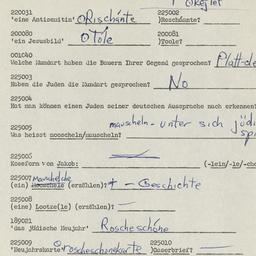 220031 225002
'eine Antisemitin' ORischánte )Reschánte?
200080 200081
'ein Jesusbild' OTóle )Toole?
001040
Welche Mundart haben die Bauern Ihrer Gegend gesprochen? Platt-de
225003
Haben die Juden die Mundart gesprochen? No
225004
Hat man können einen Juden seiner deutschen Aussprache nach erkennen?
225005 mauscheln - unter sich jüdi
Was heisst mooscheln/muscheln? sp
225006
Koseform von Jakob: (-lein/-le/-che
225007 mauschelche
(ein) Mooschele (erzählen)? + - Geschichte
225008
(ein) Lootze(le) (erzählen)? —
189021
'das jüdische Neujahr' Roscheschóne
225009 225010
'Neujahrskarte' Roscheschonekarte )Ооserbrief? —